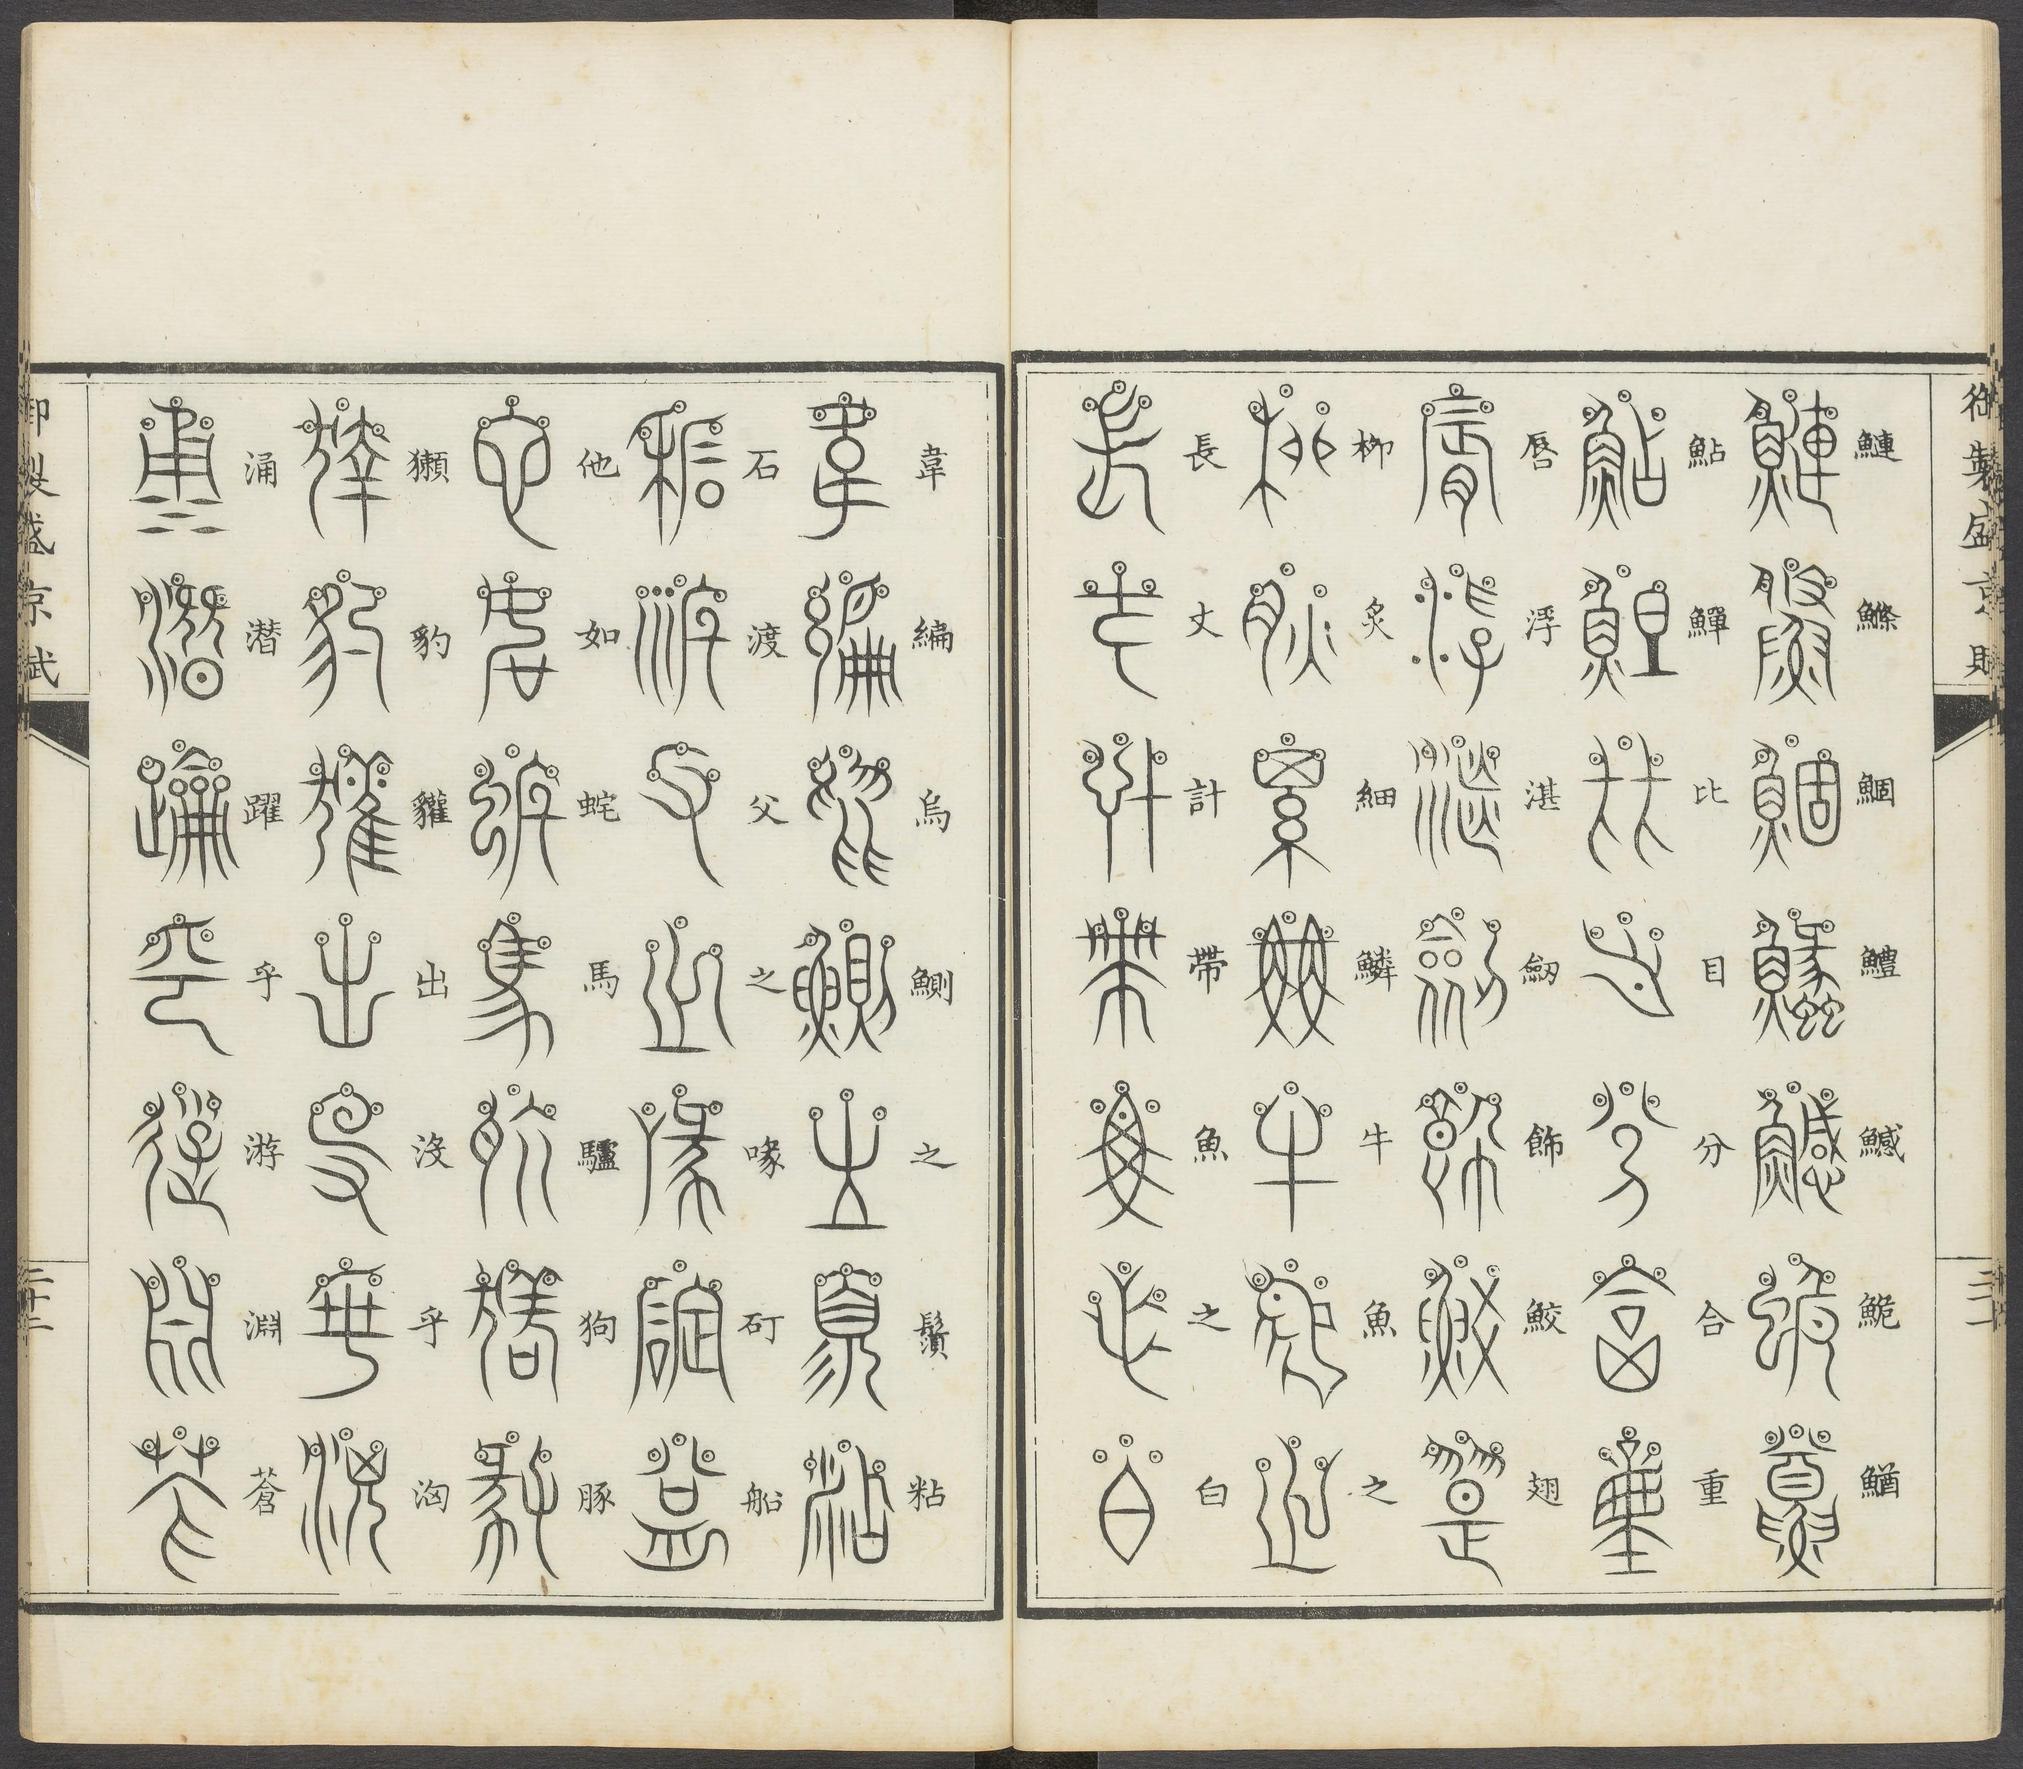 御製盛京賦
鰱鰷鯝鱧鱤鮠鰌
鮎鱓比目分合重
唇浮湛劒飾鮫翅
柳炙細鱗牛魚之
長丈計帶魚之白
韋編烏鰂之鬚粘
石渡父之喙矴船
他如蛇馬驢狗豚
獺豹貛出沒乎洶
涌潛躍乎游淵蒼
御製盛京賦
二十二